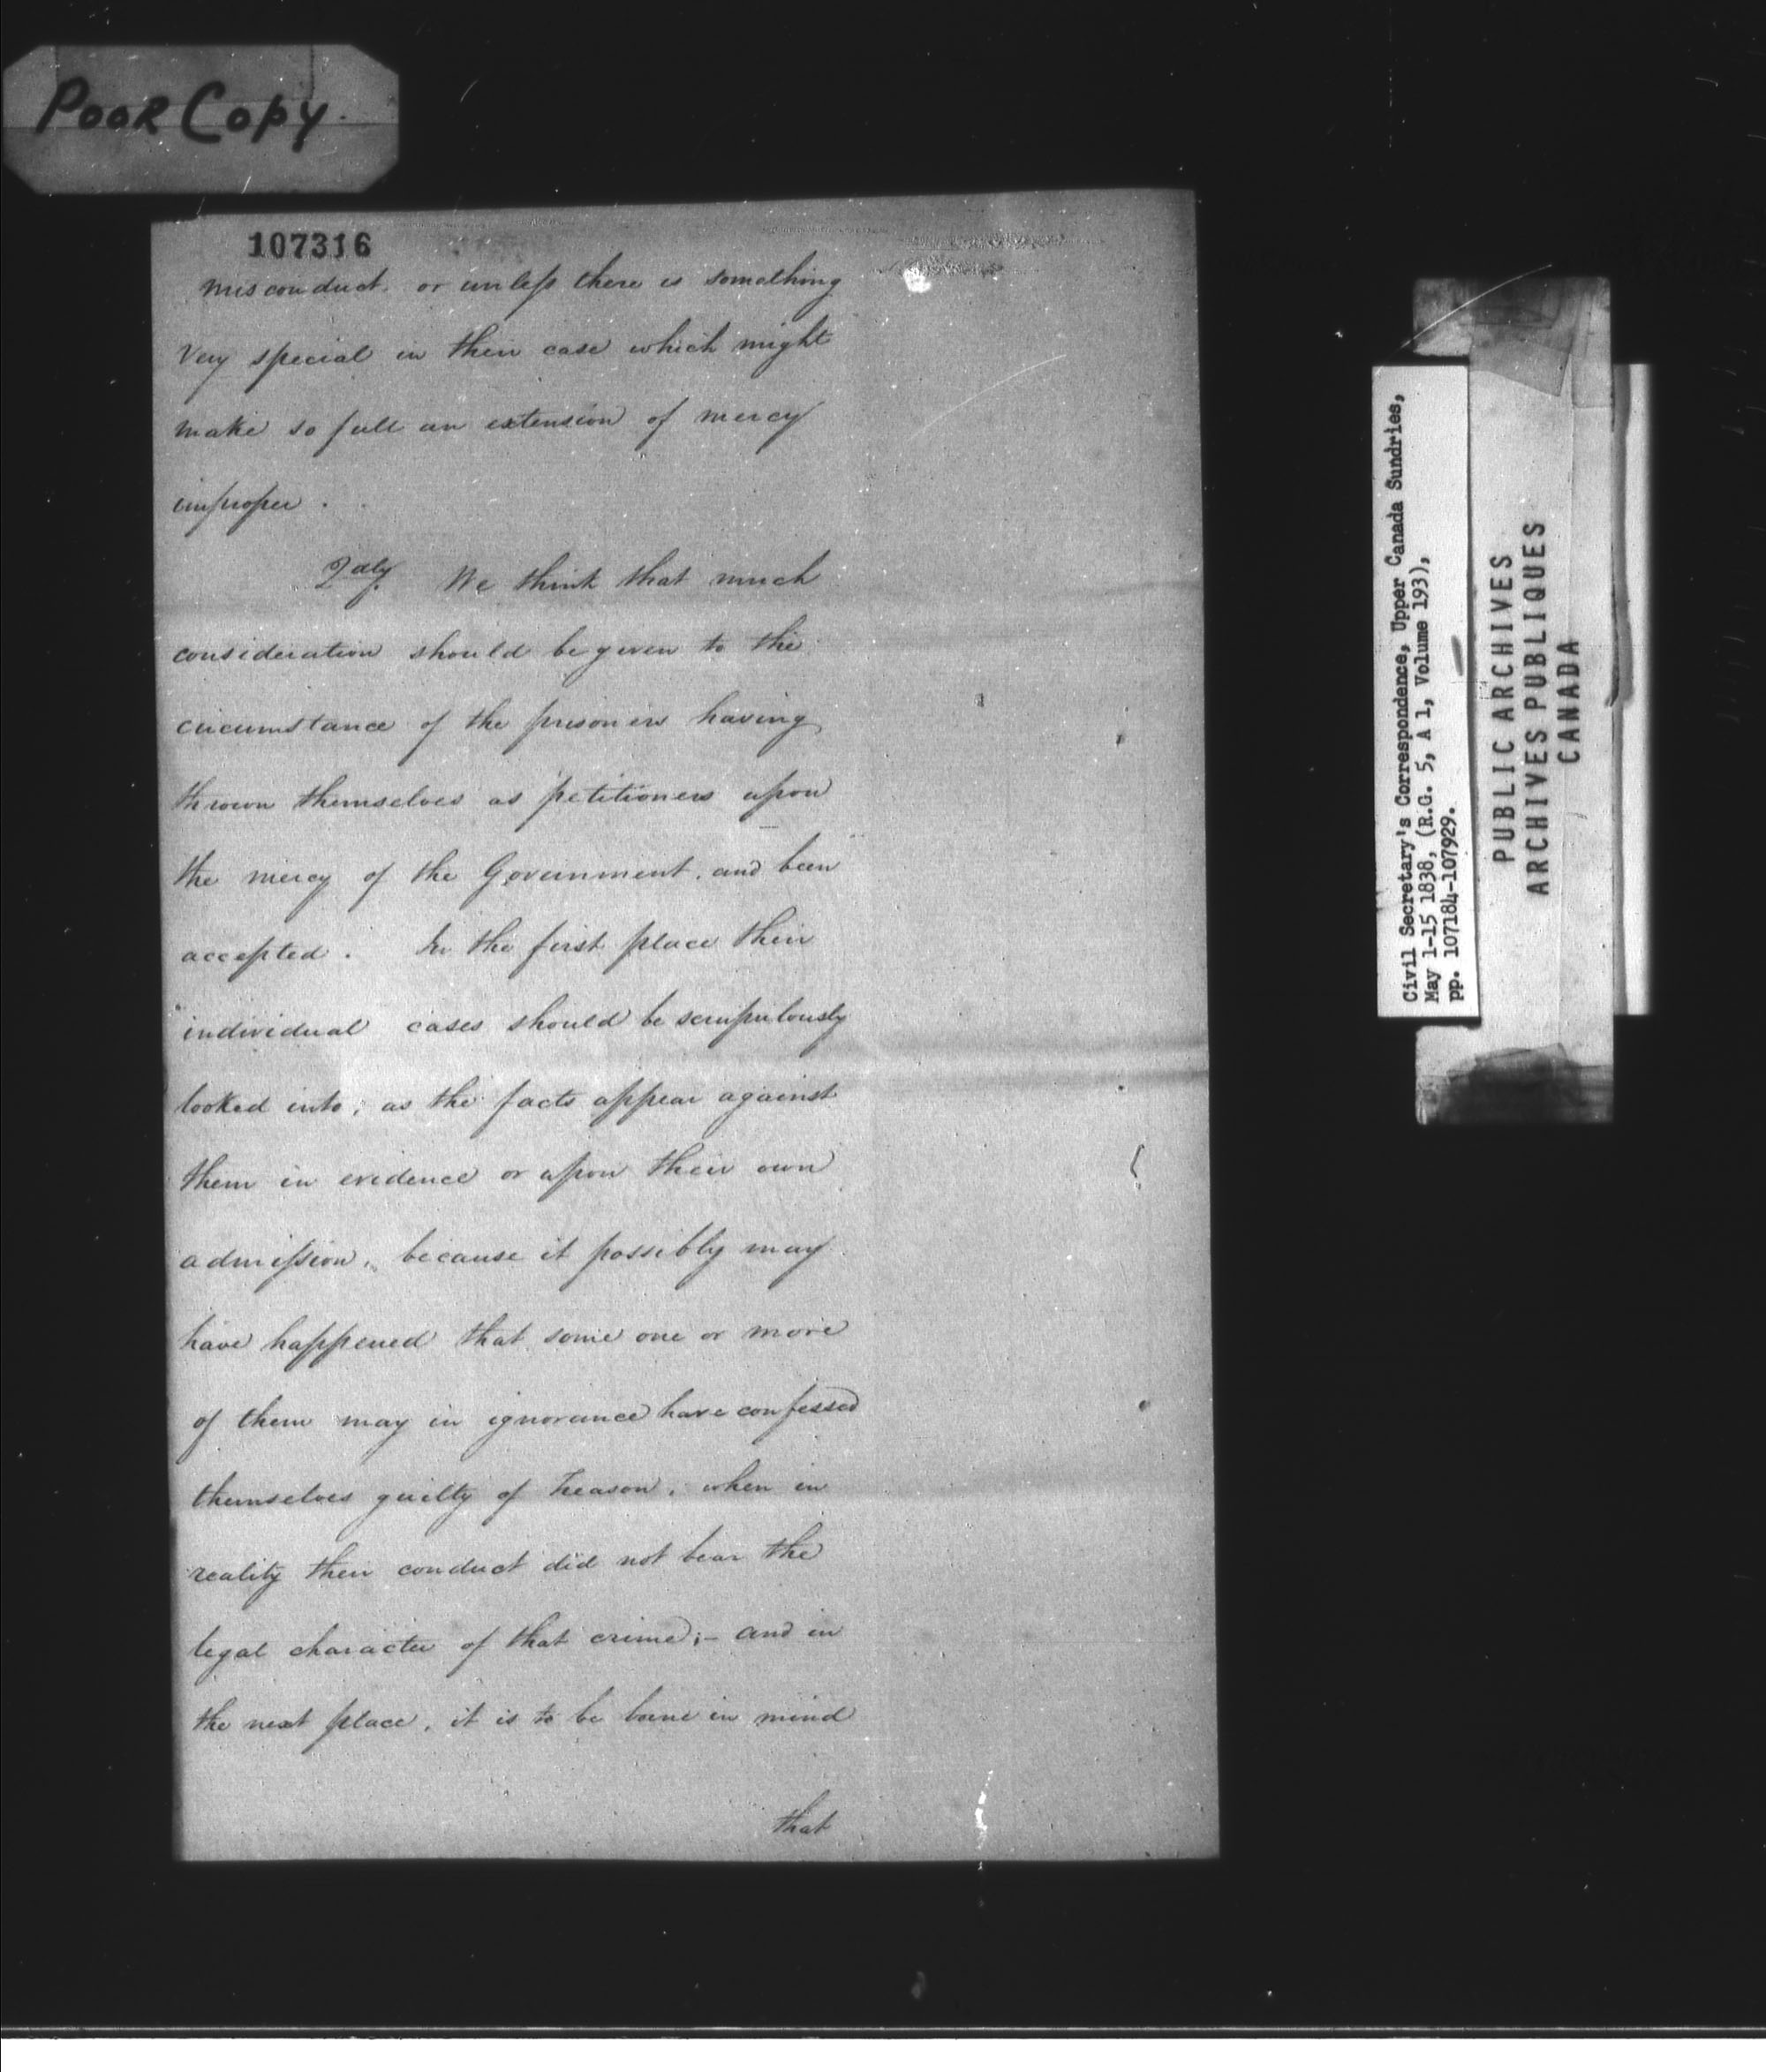 Poor Copy.
107316
misconduct. or unless there is something
very special in their case which might
make so full an extension of mercy
improper.
2dly. We think that much
consideration should be given to the
circumstance of the prisoners having
thrown themselves as petitioners upon
the mercy of the Government, and been
accepted. In the first place their
individual cases should be scrupulously
looked into, as the facts appear against
them in evidence or upon their own
admission, because it possibly may
have happened that some one or more
of them may in ignorance have confessed
themselves guilty of treason, when in
reality their conduct did not bear the
legal character of that crime;- and in
the next place, it is to be borne in mind
that
Civil Secretary's Correspondence, Upper Canada Sundries,
May 1-15 1838, (R.G. 5, A 1, Volume 193),
pp. 107184-107929.
PUBLIC ARCHIVES
ARCHIVES PUBLIQUES
CANADA